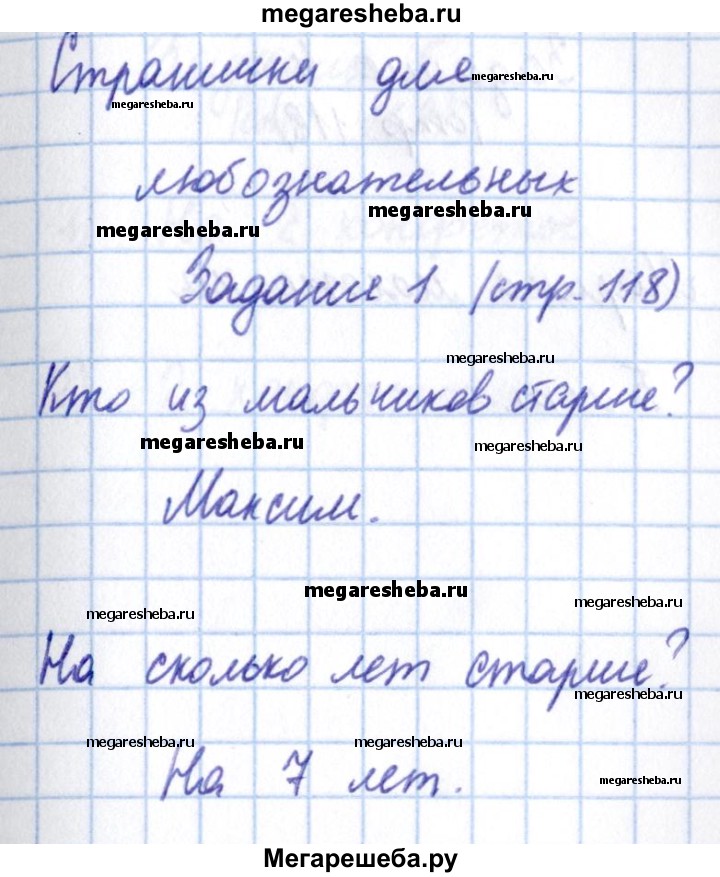 megaresheba.ru
Странички для
megaresheba.ru
megaresheba.ru
любознательных
megaresheba.ru
megaresheba.ru
Задание 1 (стр. 118)
megaresheba.ru
Кто из мальчиков старше?
megaresheba.ru
megaresheba.ru
Максим.
megaresheba.ru
megaresheba.ru
megaresheba.ru
На сколько лет старше?
megaresheba.ru
megaresheba.ru
megaresheba.ru
На 7 лет.
megaresheba.ru
Мегарешеба.ру